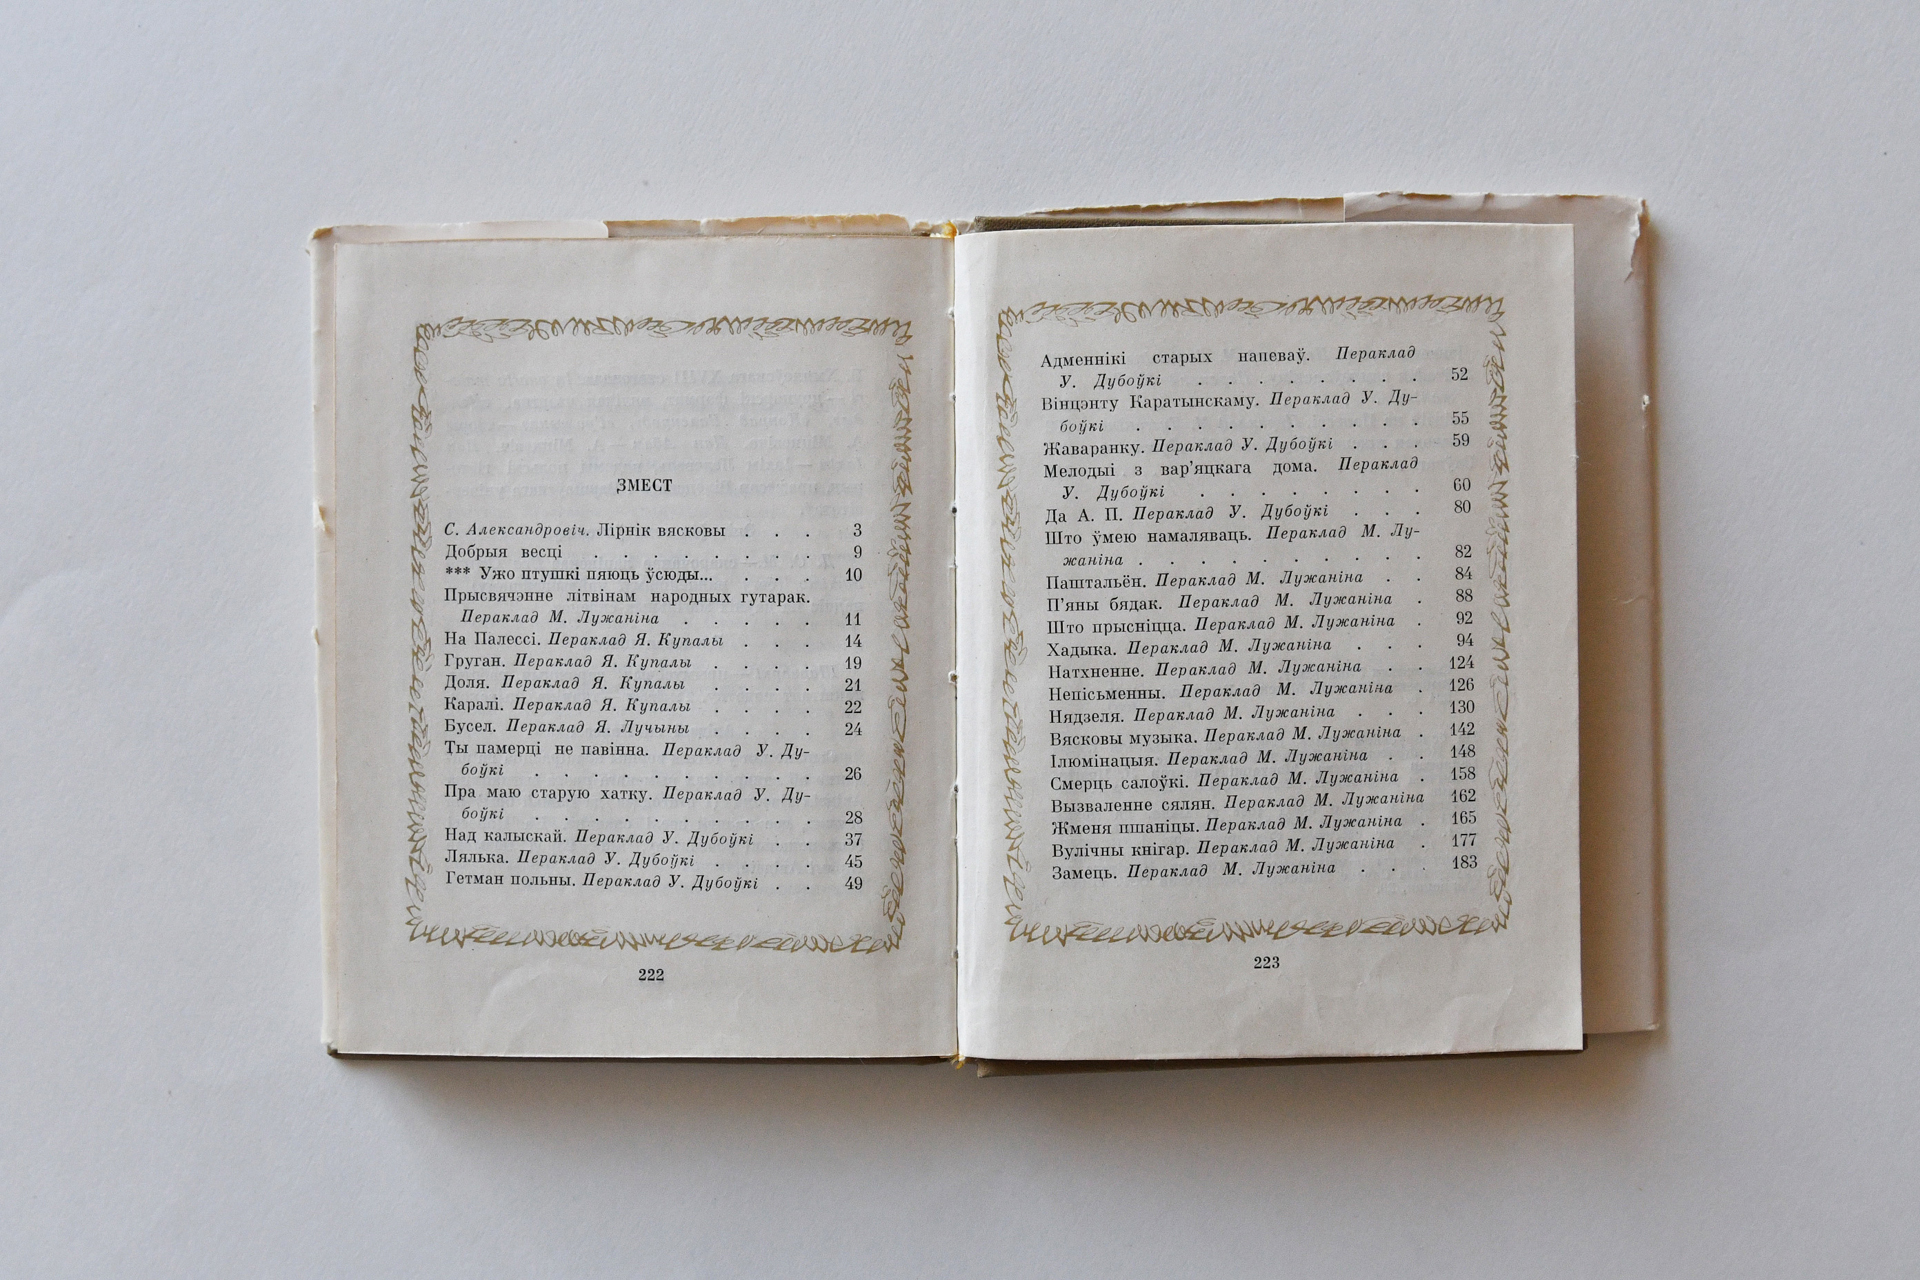 ЗМЕСТ
С. Александровіч. Лірнік вясковы . . . 3
Добрыя весці . . . . . . . . 9
*** Ужо птушкі пяюць ўсюды... . . . 10
Прысвячэнне літвінам народных гутарак.
Пераклад М. Лужаніна . . . . . 11
На Палессі. Пераклад Я. Купалы . . . 14
Груган. Пераклад Я. Купалы . . . . 19
Доля. Пераклад Я. Купалы . . . . 21
Каралі. Пераклад Я. Купалы . . . . 22
Бусел. Пераклад Я. Лучыны . . . . 24
Ты памерці не павінна. Пераклад У. Ду-
боўкі . . . . . . . . . . 26
Пра маю старую хатку. Пераклад У. Ду-
боўкі . . . . . . . . . . 28
Над калыскай. Пераклад У. Дубоўкі . . 37
Лялька. Пераклад У. Дубоўкі . . . . 45
Гетман польны. Пераклад У. Дубоўкі . . 49
222
Адменнікі старых напеваў. Пераклад
У. Дубоўкі . . . . . . . . 52
Вінцэнту Каратынскаму. Пераклад У. Ду-
боўкі . . . . . . . . . . 55
Жаваранку. Пераклад У. Дубоўкі . . . 59
Мелодыі з вар'яцкага дома. Пераклад
У. Дубоўкі . . . . . . . . 60
Да А. П. Пераклад У. Дубоўкі . . . 80
Што ўмею намаляваць. Пераклад М. Лу-
жаніна . . . . . . . . . . 82
Паштальён. Пераклад М. Лужаніна . . 84
П'яны бядак. Пераклад М. Лужаніна . 88
Што прысніцца. Пераклад М. Лужаніна . 92
Хадыка. Пераклад М. Лужаніна . . . 94
Натхненне. Пераклад М. Лужаніна . . 124
Непісьменны. Пераклад М. Лужаніна . 126
Нядзеля. Пераклад М. Лужаніна . . . 130
Вясковы музыка. Пераклад М. Лужаніна . 142
Ілюмінацыя. Пераклад М. Лужаніна . . 148
Смерць салоўкі. Пераклад М. Лужаніна . 158
Вызваленне сялян. Пераклад М. Лужаніна 162
Жменя пшаніцы. Пераклад М. Лужаніна . 165
Вулічны кнігар. Пераклад М. Лужаніна . 177
Замець. Пераклад М. Лужаніна . . . 183
223